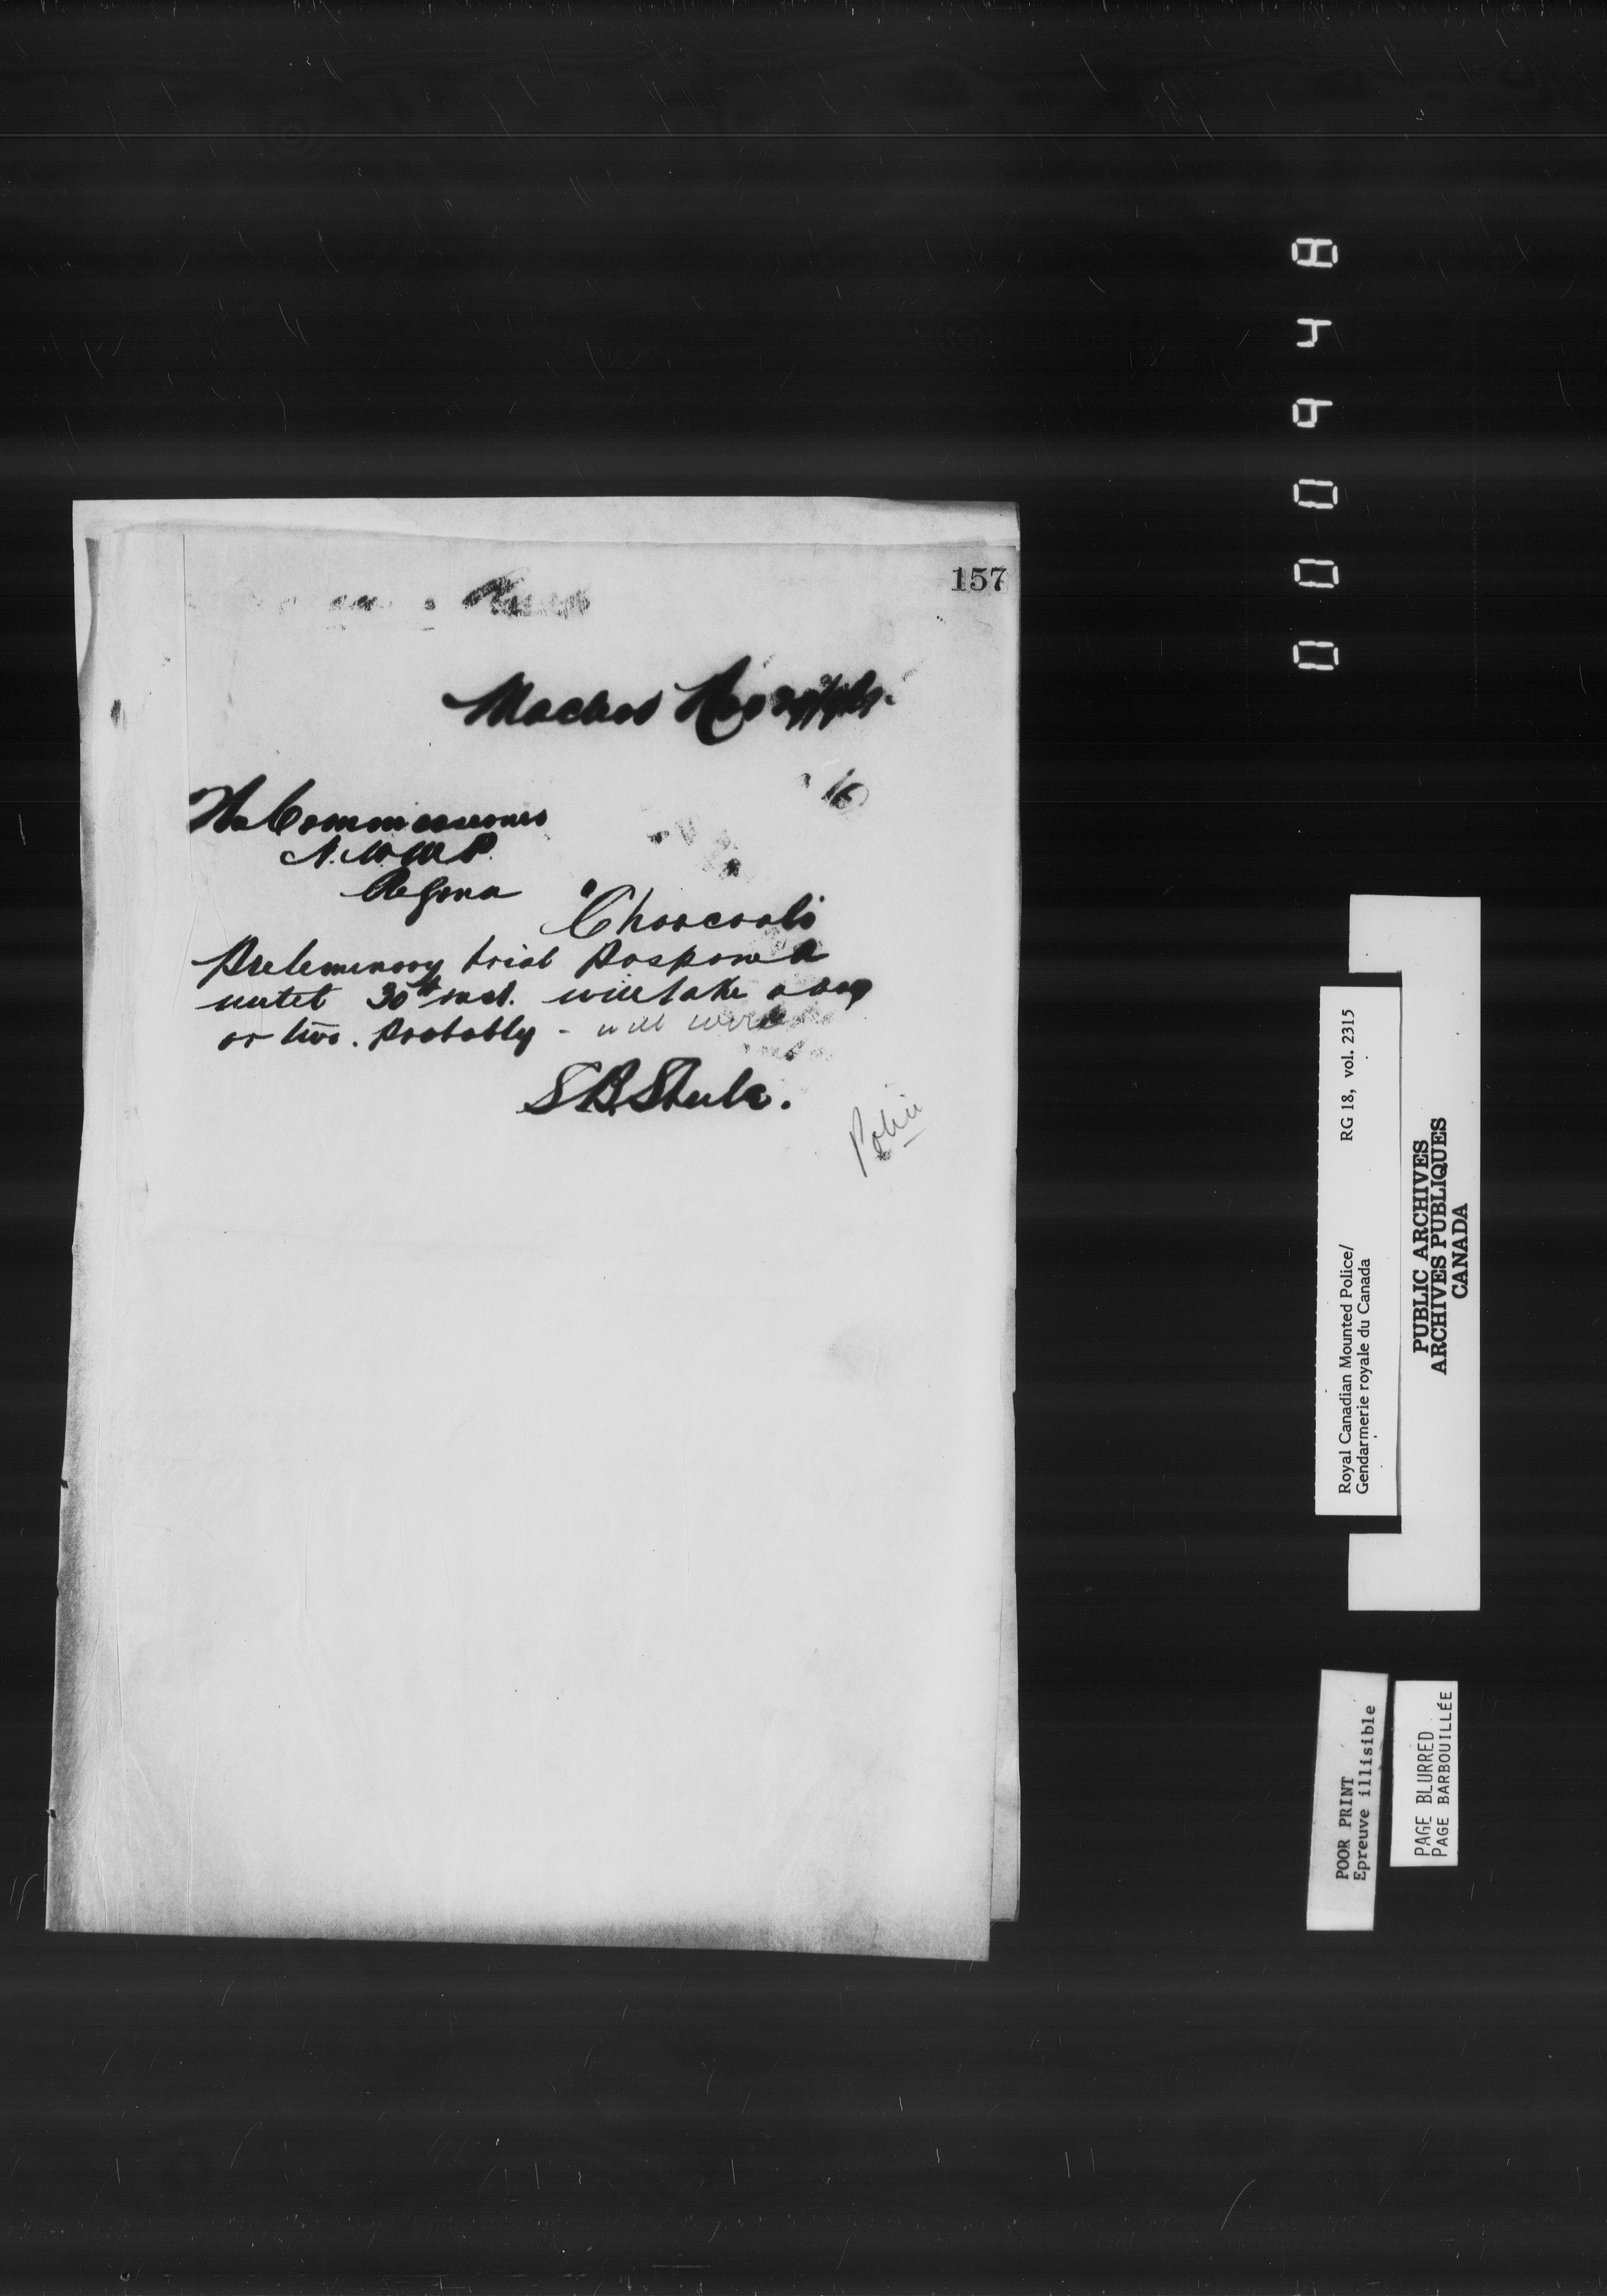 157
Macleod Nov
16
The Commissioner
N.W.M.P.
Regina
"Charcoals
Preliminary trial Postponed
until 30th inst. will take a day
or two. Probably - will wire
S B Steele.
Police
000948
Royal Canadian Mounted Police/ RG 18, vol. 2315
Gendarmerie royale du Canada
PUBLIC ARCHIVES
ARCHIVES PUBLIQUES
CANADA
POOR PRINT
Epreuve illisible
PAGE BLURRED
PAGE BARBOUILLÉE